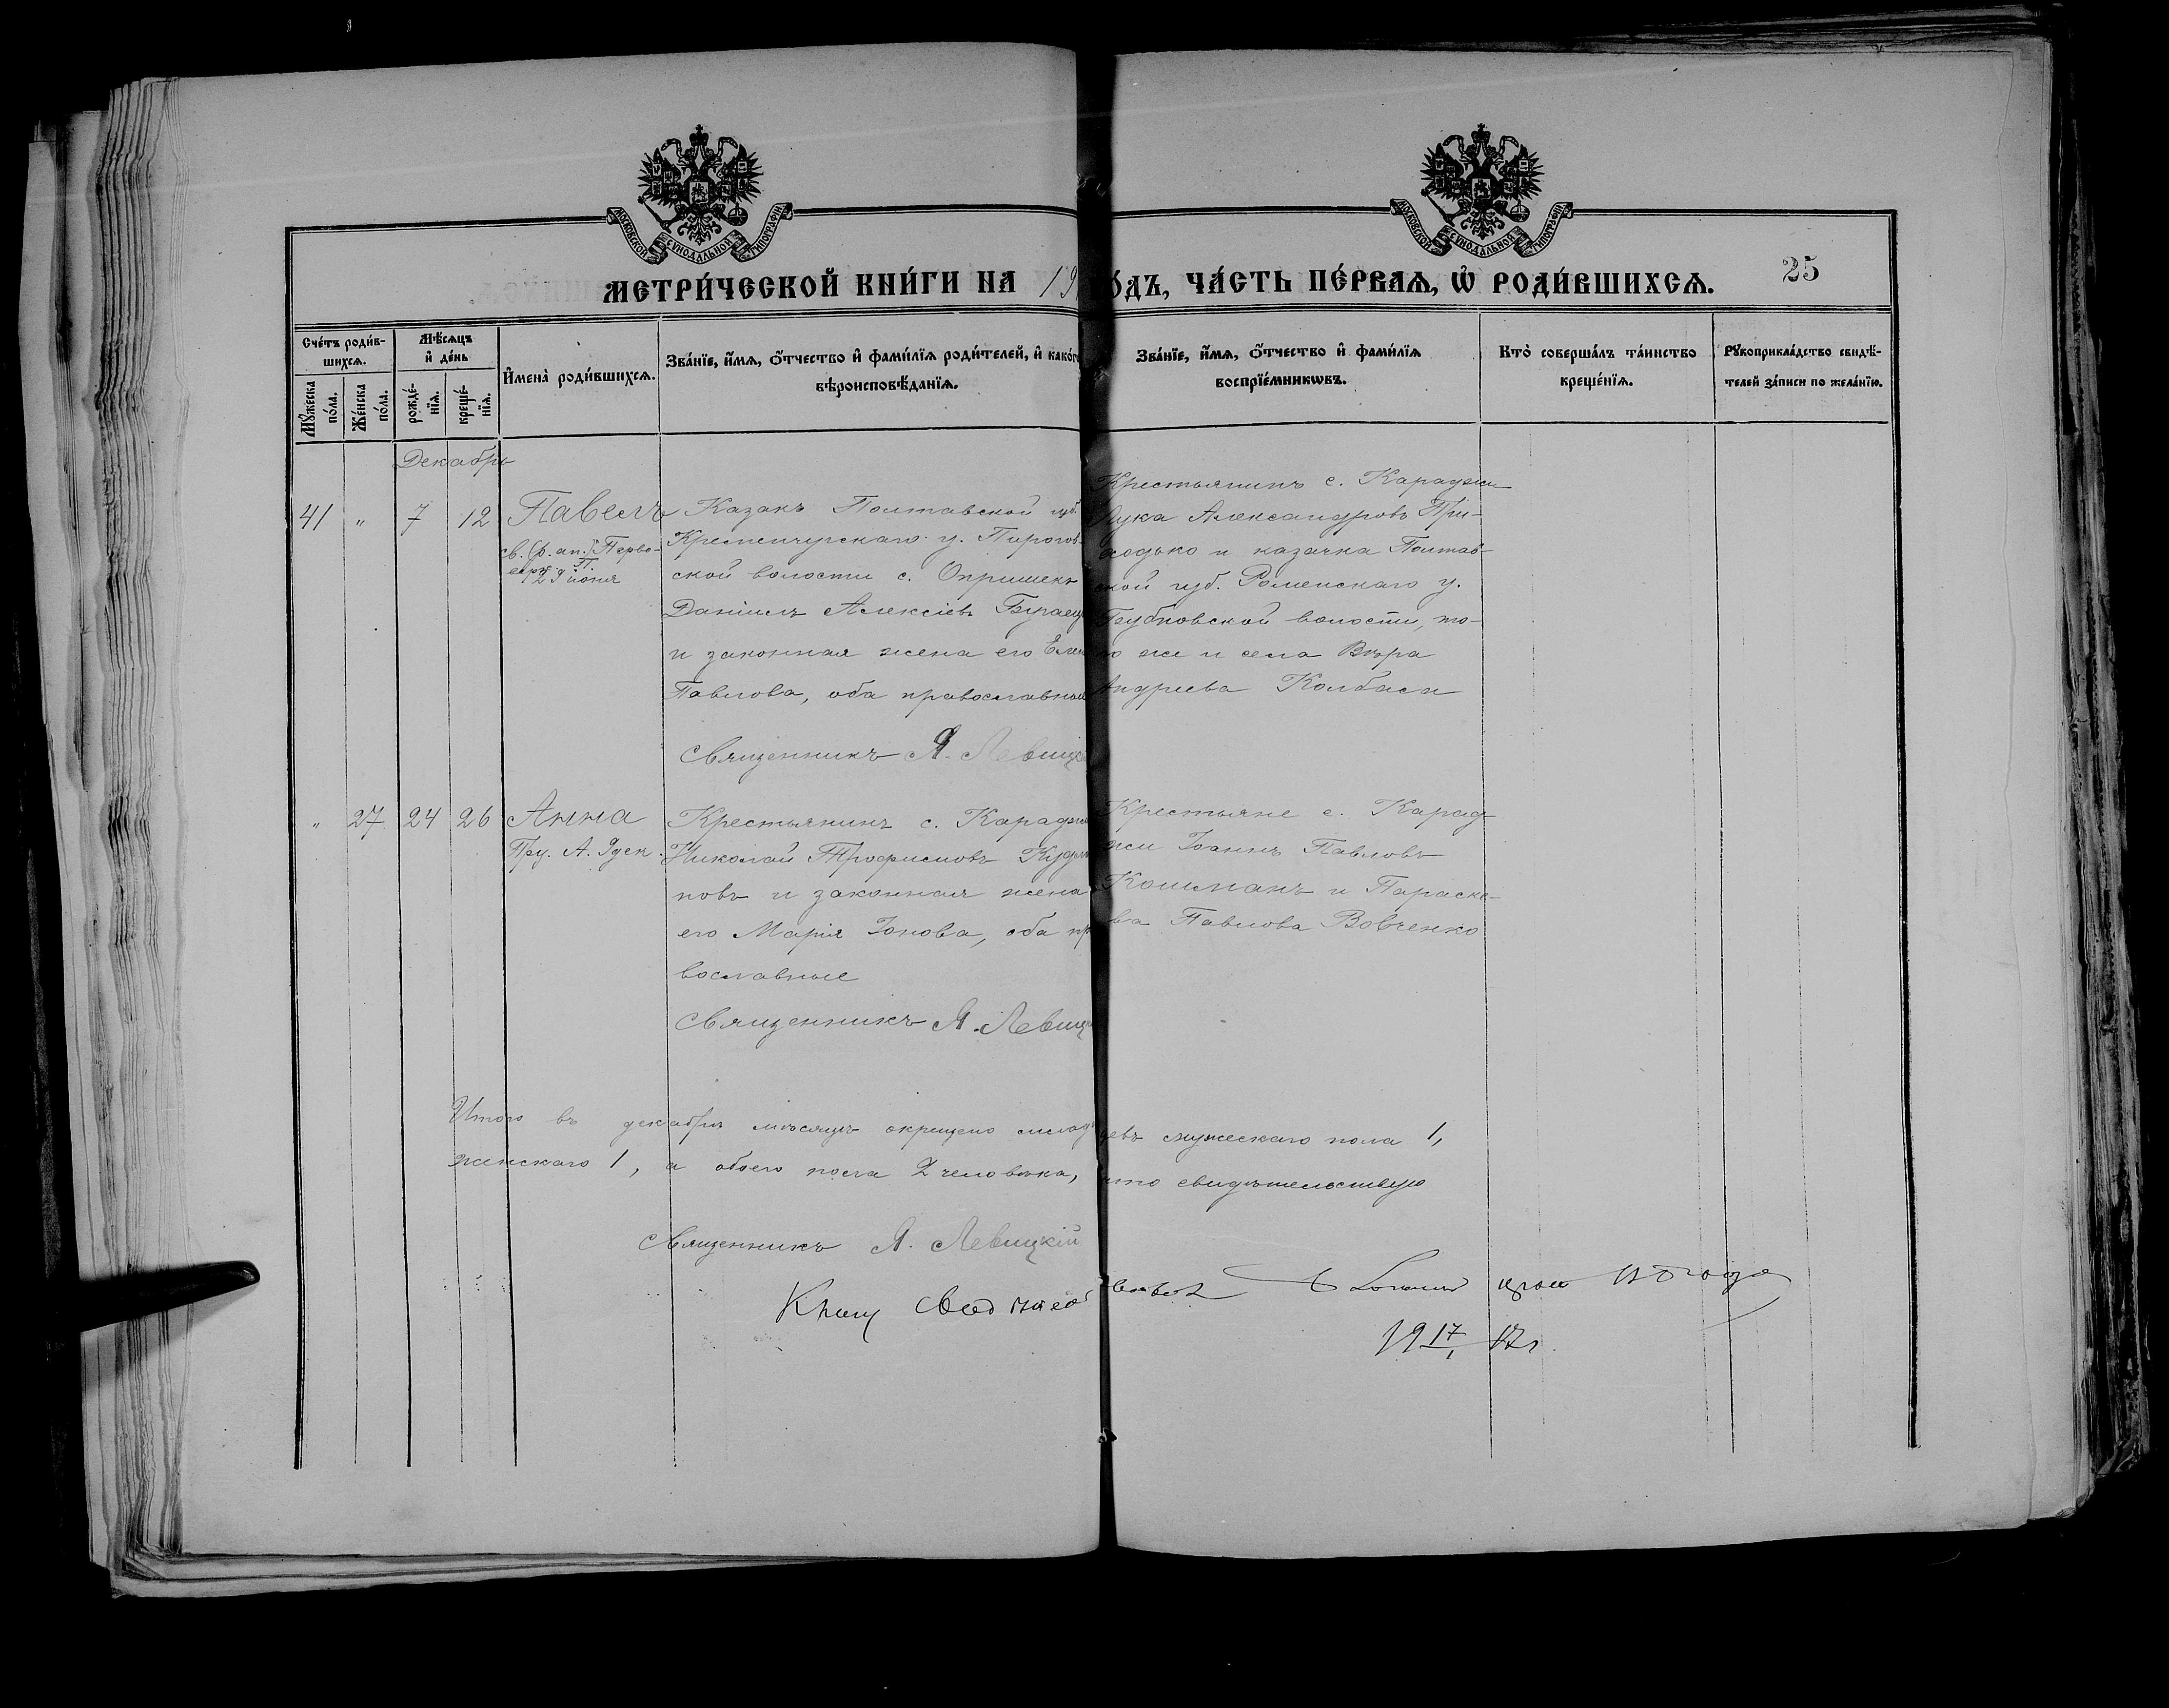 МОСКОВСКОЙ СѴНОДАЛЬНОЙ ТИПОГРАФІИ
МОСКОВСКОЙ СѴНОДАЛЬНОЙ ТИПОГРАФІИ
МЕТРИ́ЧЕСКОЙ КНИ́ГИ НА 19
О́ДЪ, ЧА́СТЬ ПЕ́РВАѦ, Ѡ РОДИ́ВШИХСѦ.
25
Сче́тъ роди́в-
шихсѧ.
Мꙋ́жеска
по́ла.
Же́нска
по́ла.
Мѣ́сѧцъ
и҆ де́нь
рожде́-
нїѧ.
креще́-
нїѧ.
И҆мена̀ роди́вшихсѧ.
Зва́нїе, и҆́мѧ, ѻ҆́тчество и҆ фами́лїѧ роди́телей, и҆ како́г
вѣроисповѣ́данїѧ.
Зва́нїе, и҆́мѧ, ѻ҆́тчество и҆ фами́лїѧ
воспрїе́мникѡвъ.
Кто̀ соверша́лъ та́инство
креще́нїѧ.
Рꙋкоприкла́дство свидѣ́-
телей за́писи по жела́нїю.
Декабрь
41 " 7 12 Павелъ
св. (р. ап.) Перво-
верх. П.
29 іюня
Казакъ Полтавской губ.
Кременчугскаго у. Пирогов-
ской волости с. Опришекъ
Даніилъ Алексіевъ
и законная жена его Елен
Павлова, оба православные
Священникъ Я. Левицк
Крестьянинъ с. Караджи
Лука Александровъ При-
ходько и казачка Полтав-
ской губ. Роменскаго у.
волости, то-
го же и села Вѣра
Андреева Колбаса
" 27 24 26 Анна
Пр. А. 9 дек.
Крестьянинъ с. Караджи
Николай Трофимовъ
новъ и законная жена
его Марія Іонова, оба пр
вославные
Священникъ Я. Левицк
Крестьяне с. Карад-
жи Іоаннъ Павловъ
Кошманъ и Параске-
ва Павлова Вовченко
Итого въ декабрѣ мѣсяцѣ окрещено младенцевъ мужескаго пола 1,
женскаго 1, а обоего пола 2 человѣка, что свидѣтельствую
Священникъ Я. Левицкій
1917